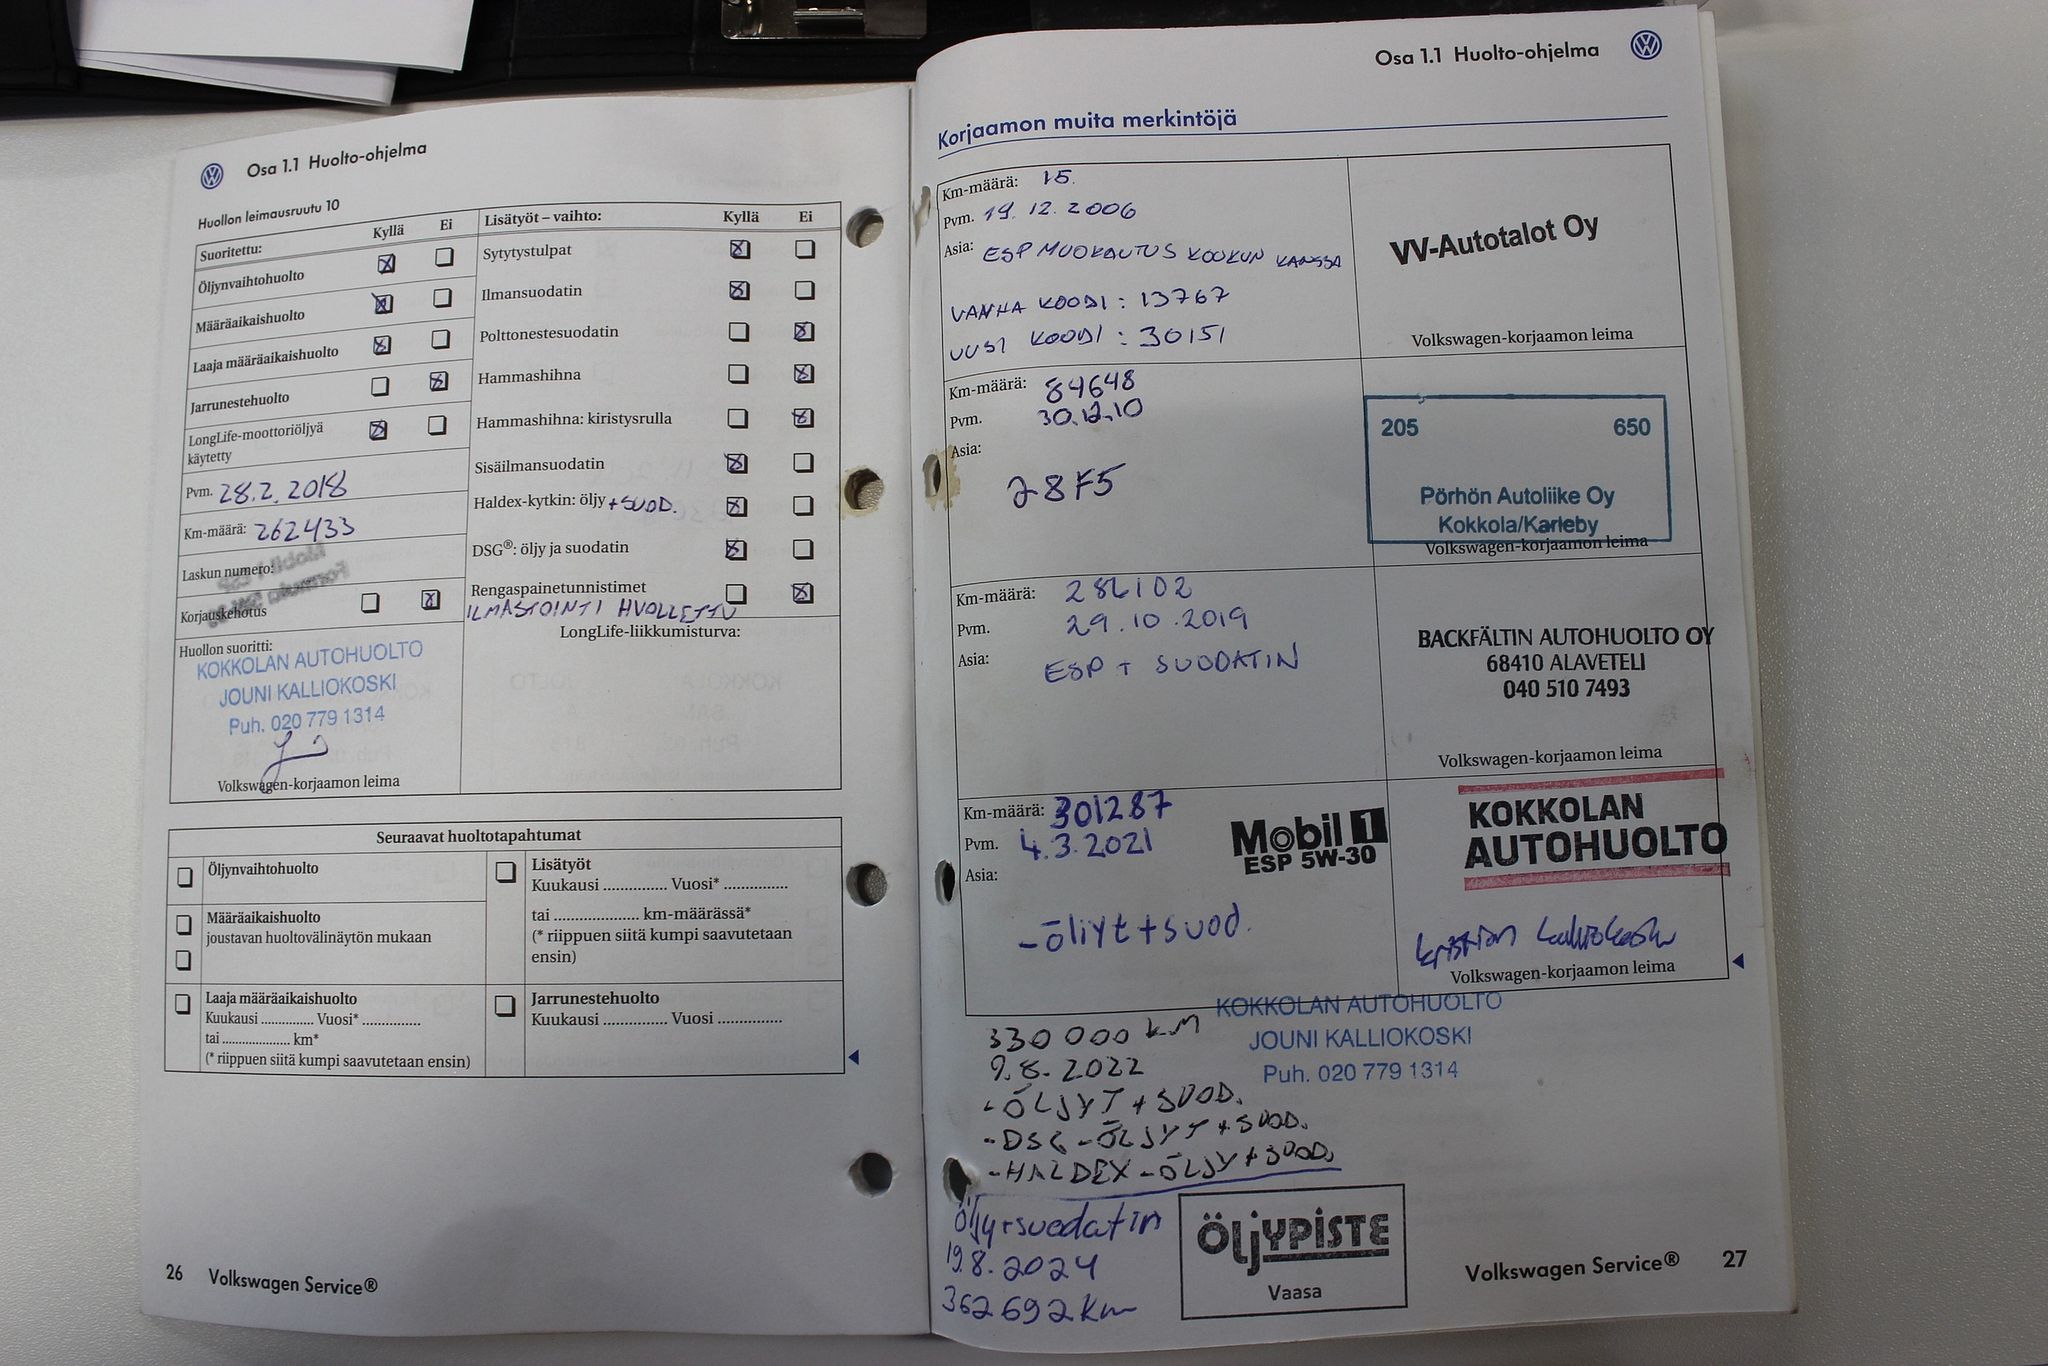 Osa 1.1 Huolto-ohjelma
Huollon leimausruutu 10
Suoritettu: Kyllä Ei
Öljynvaihtohuolto
Määräaikaishuolto
Laaja määräaikaishuolto
Jarrunestehuolto
LongLife-moottoriöljyä
käytetty
Pvm. 28.2.2018
Km-määrä: 262433
Laskun numero:
Korjauskehotus
Huollon suoritti:
KOKKOLAN AUTOHUOLTO
JOUNI KALLIOKOSKI
Puh. 020 779 1314
Volkswagen-korjaamon leima
Lisätyöt – vaihto: Kyllä Ei
Sytytystulpat
Ilmansuodatin
Polttonestesuodatin
Hammashihna
Hammashihna: kiristysrulla
Sisäilmansuodatin
Haldex-kytkin: öljy + SUOD.
DSG®: öljy ja suodatin
Rengaspainetunnistimet
ILMASTOINTI HUOLLETTU
LongLife-liikkumisturva:
Seuraavat huoltotapahtumat
Öljynvaihtohuolto
Määräaikaishuolto
joustavan huoltovälinäytön mukaan
Laaja määräaikaishuolto
Kuukausi ............... Vuosi* ...............
tai .................... km*
(* riippuen siitä kumpi saavutetaan ensin)
Lisätyöt
Kuukausi ............... Vuosi* ...............
tai .................... km-määrässä*
(* riippuen siitä kumpi saavutetaan
ensin)
Jarrunestehuolto
Kuukausi ............... Vuosi ...............
26 Volkswagen Service®
Osa 1.1 Huolto-ohjelma
Korjaamon muita merkintöjä
Km-määrä: 15.
Pvm. 19.12.2006
Asia: ESP MUOKAUTUS KOUKUN KANSSA
VANHA KOODI : 13767
UUSI KOODI : 30151
VV-Autotalot Oy
Volkswagen-korjaamon leima
Km-määrä: 84648
Pvm. 30.12.10
Asia:
28F5
205 650
Pörhön Autoliike Oy
Kokkola/Karleby
Volkswagen-korjaamon leima
Km-määrä: 286102
Pvm. 29.10.2019
Asia: ESP + SUODATIN
BACKFÄLTIN AUTOHUOLTO OY
68410 ALAVETELI
040 510 7493
Volkswagen-korjaamon leima
Km-määrä: 301287
Pvm. 4.3.2021
Asia:
- öljyt + suod.
Mobil 1
ESP 5W-30
KOKKOLAN
AUTOHUOLTO
Volkswagen-korjaamon leima
KOKKOLAN AUTOHUOLTO
JOUNI KALLIOKOSKI
Puh. 020 779 1314
330 000 km
9.8.2022
- ÖLJYT + SUOD.
- DSG - ÖLJYT + SUOD.
- HALDEX - ÖLJY + SUOD.
Öljy + suodatin
19.8.2024
362692 km
ÖLJYPISTE
Vaasa
Volkswagen Service® 27